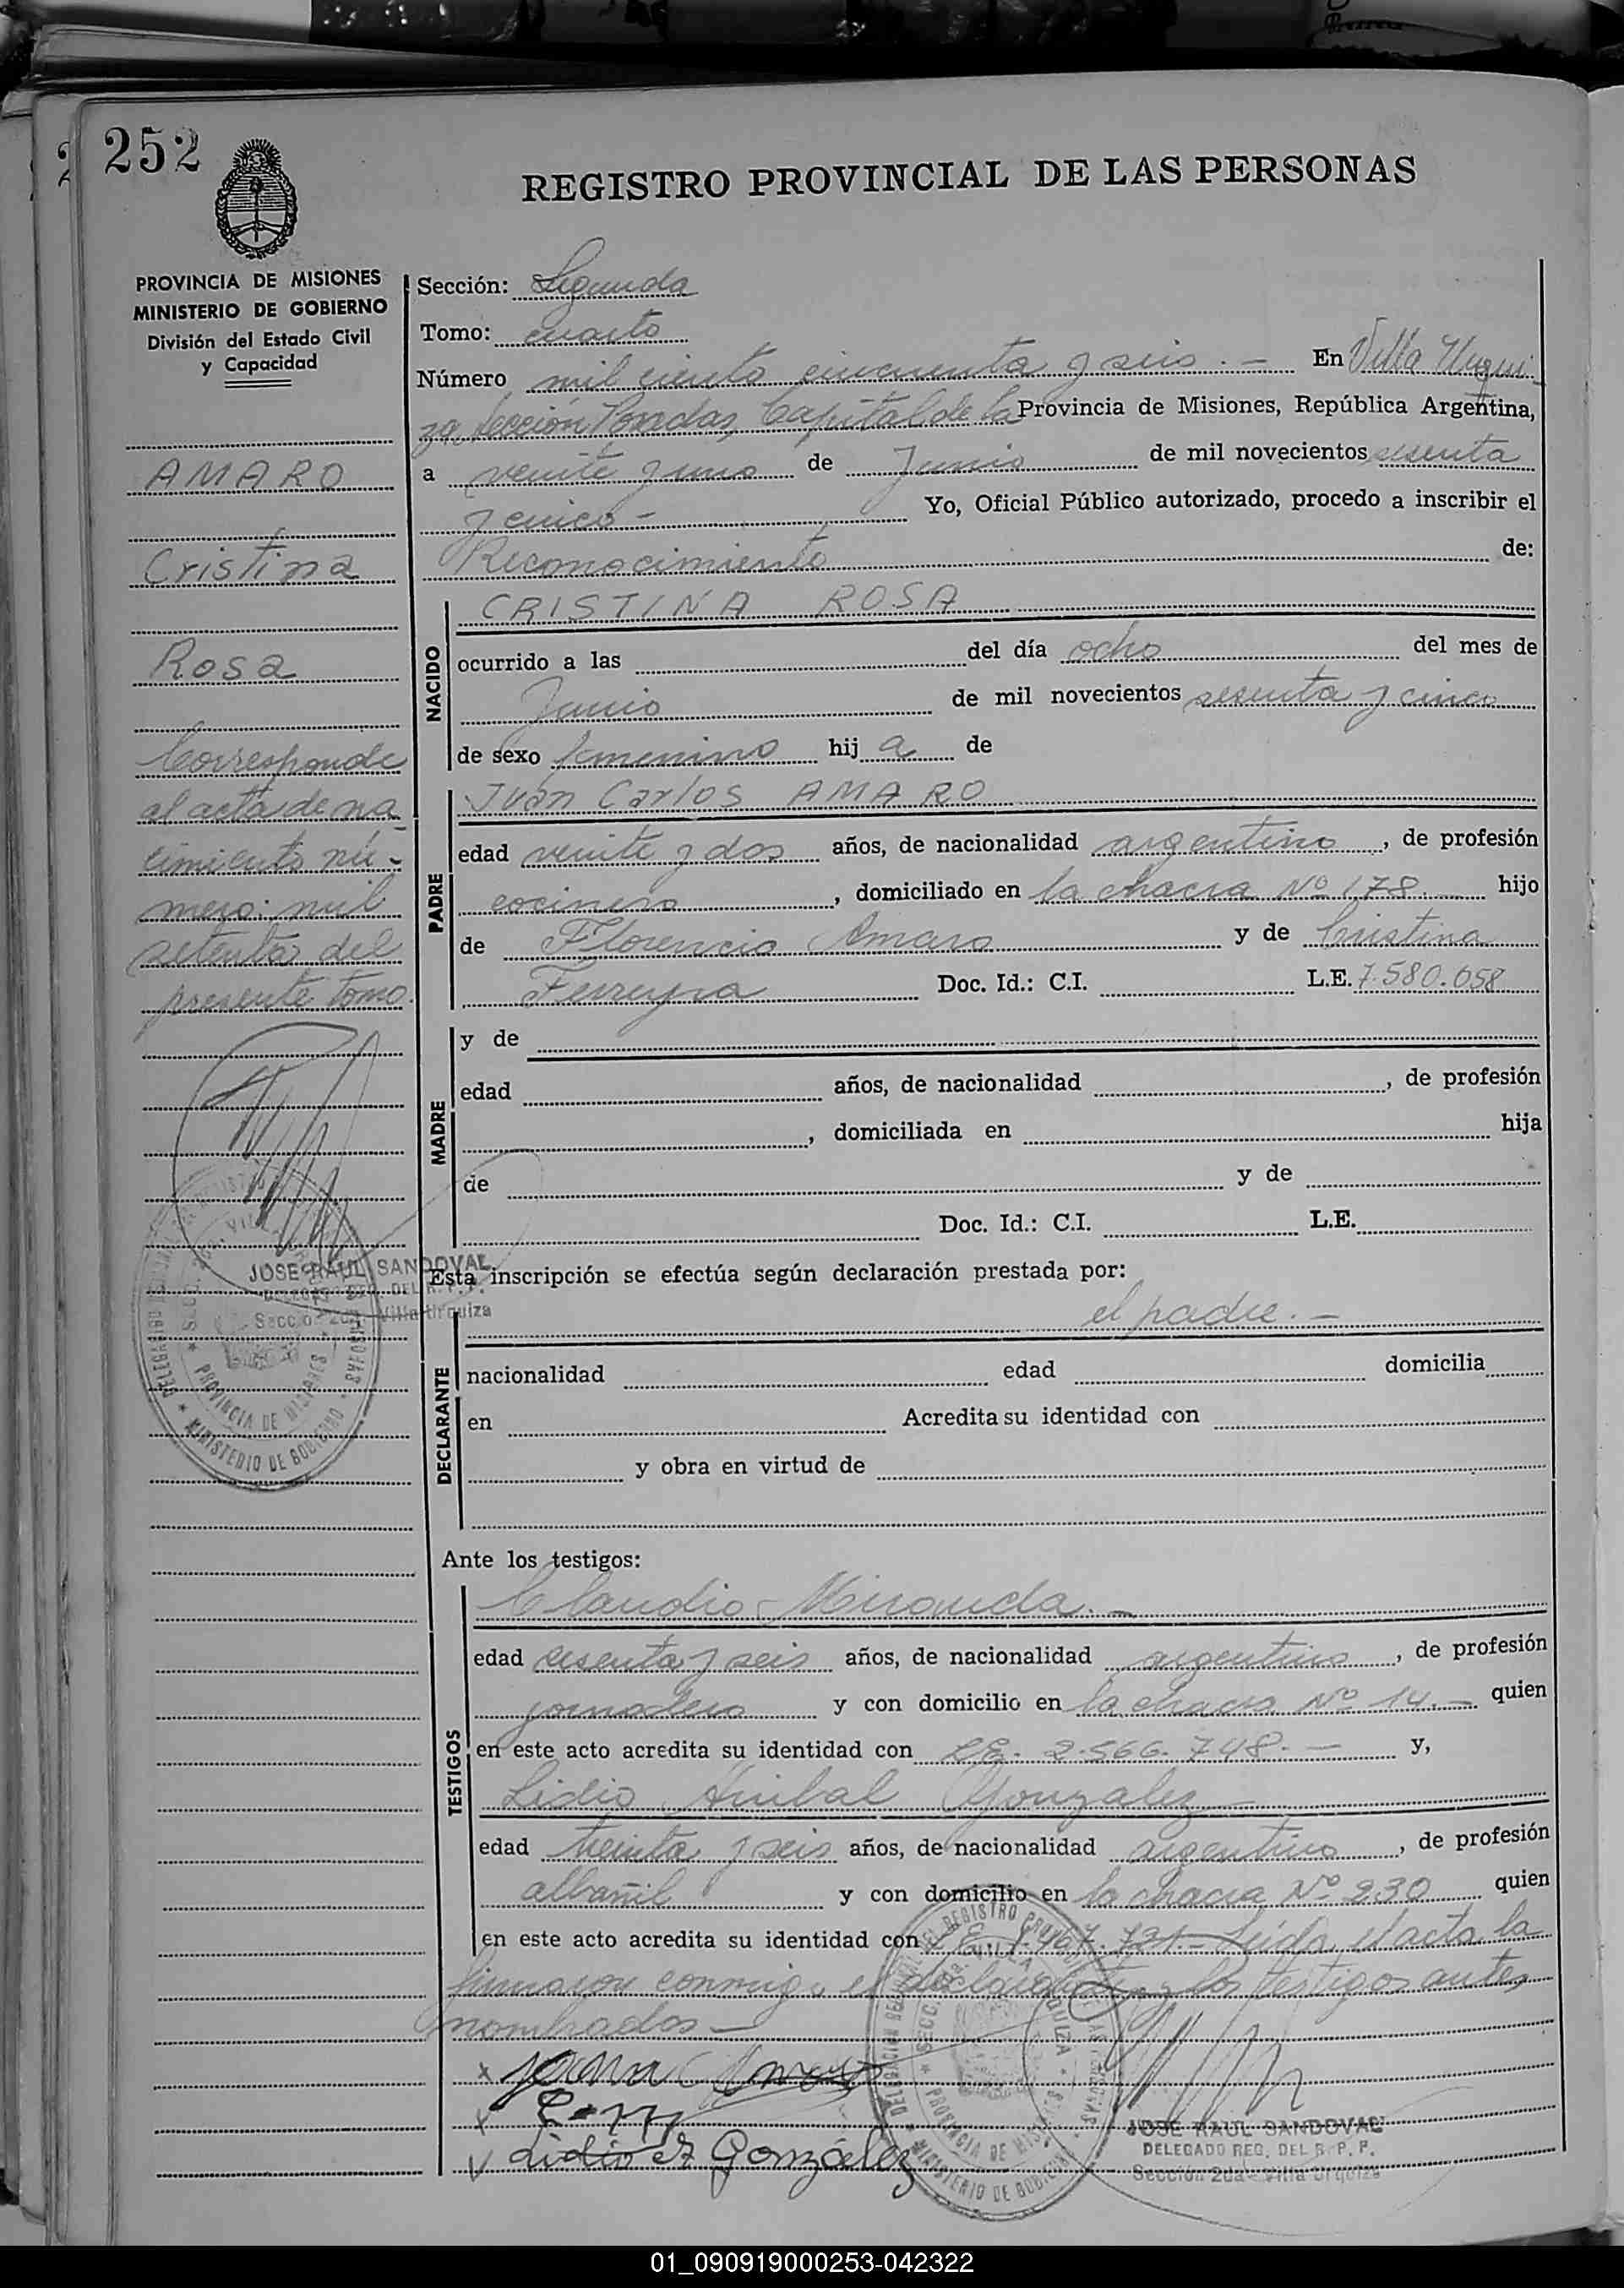 252
REGISTRO PROVINCIAL DE LAS PERSONAS
PROVINCIA DE MISIONES
MINISTERIO DE GOBIERNO
División del Estado Civil
y Capacidad
AMARO
Cristina
Rosa
Corresponde
al acta de na
cimiento nú-
mero: mil
setenta del
presente tomo.
JOSE RAUL SANDOVAL
DELEGADO REG. DEL R. P. P.
Sección 2da - Villa Urquiza
PROVINCIA DE MISIONES
MINISTERIO DE GOBIERNO
Sección: Segunda
Tomo: cuarto
Número mil ciento cincuenta y seis.- En Villa Urqui-
za, Sección Posadas, Capital de la Provincia de Misiones, República Argentina,
a veinte y uno de Junio de mil novecientos sesenta
y cinco - Yo, Oficial Público autorizado, procedo a inscribir el
Reconocimiento de:
NACIDO
CRISTINA ROSA
ocurrido a las del día ocho del mes de
Junio de mil novecientos sesenta y cinco
de sexo femenino hij a de
PADRE
Juan Carlos AMARO
edad veinte y dos años, de nacionalidad argentino, de profesión
cocinero, domiciliado en la chacra Nº 178. hijo
de Florencio Amaro y de Cristina
Ferreyra Doc. Id.: C.I. L.E. 7.580.058
MADRE
y de
edad años, de nacionalidad , de profesión
, domiciliada en hija
de y de
Doc. Id.: C.I. L.E.
Esta inscripción se efectúa según declaración prestada por:
DECLARANTE
el padre.-
nacionalidad edad domicilia
en Acredita su identidad con
y obra en virtud de
Ante los testigos:
TESTIGOS
Claudio Miranda.-
edad sesenta y seis años, de nacionalidad argentino, de profesión
jornalero y con domicilio en la chacra Nº 14.- quien
en este acto acredita su identidad con LE. 2.566.748.- y,
Lidio Anibal Gonzalez
edad treinta y seis años, de nacionalidad argentino, de profesión
albañil y con domicilio en la chacra Nº 230 quien
en este acto acredita su identidad con Leida el acta la
firmaron conmigo el declarante y los testigos antes
nombrados-
Lidio A González
PROVINCIA DE MISIONES
MINISTERIO DE GOBIERNO
JOSE RAUL SANDOVAL
DELEGADO REG. DEL R. P. P.
Sección 2da - Villa Urquiza
01_090919000253-042322